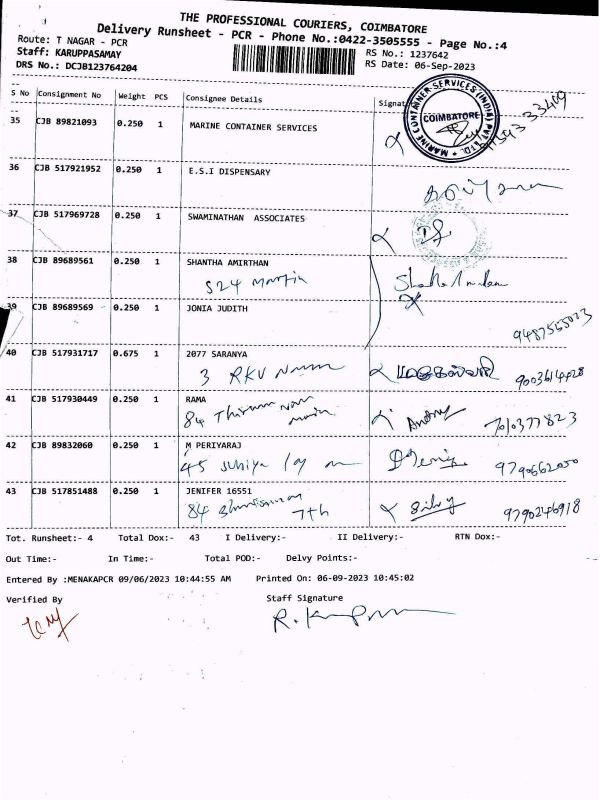 THE PROFESSIONAL COURIERS, COIMBATORE
Delivery Runsheet - PCR - Phone No.:0422-3505555 - Page No.:4
Route: T NAGAR - PCR
RS No.: 1237642
Staff: KARUPPASAMAY
RS Date: 06-Sep-2023
DRS No.: DCJB123764204
S No Consignment No Weight PCS Consignee Details Signat
MARINE CONTAINER SERVICES (INDIA) PVT. LTD.
COIMBATORE
35 CJB 89821093 0.250 1 MARINE CONTAINER SERVICES
36 CJB 517921952 0.250 1 E.S.I DISPENSARY
37 CJB 517969728 0.250 1 SWAMINATHAN ASSOCIATES
38 CJB 89689561 0.250 1 SHANTHA AMIRTHAN
S24 Martin
39 CJB 89689569 0.250 1 JONIA JUDITH
9487565023
40 CJB 517931717 0.675 1 2077 SARANYA
3 RKV 9003614428
41 CJB 517930449 0.250 1 RAMA
84 main 7010377823
42 CJB 89832060 0.250 1 M PERIYARAJ
45 9790662000
43 CJB 517851488 0.250 1 JENIFER 16551
84 7th 9790246918
Tot. Runsheet:- 4 Total Dox:- 43 I Delivery:- II Delivery:- RTN Dox:-
Out Time:- In Time:- Total POD:- Delvy Points:-
Entered By :MENAKAPCR 09/06/2023 10:44:55 AM Printed On: 06-09-2023 10:45:02
Verified By Staff Signature